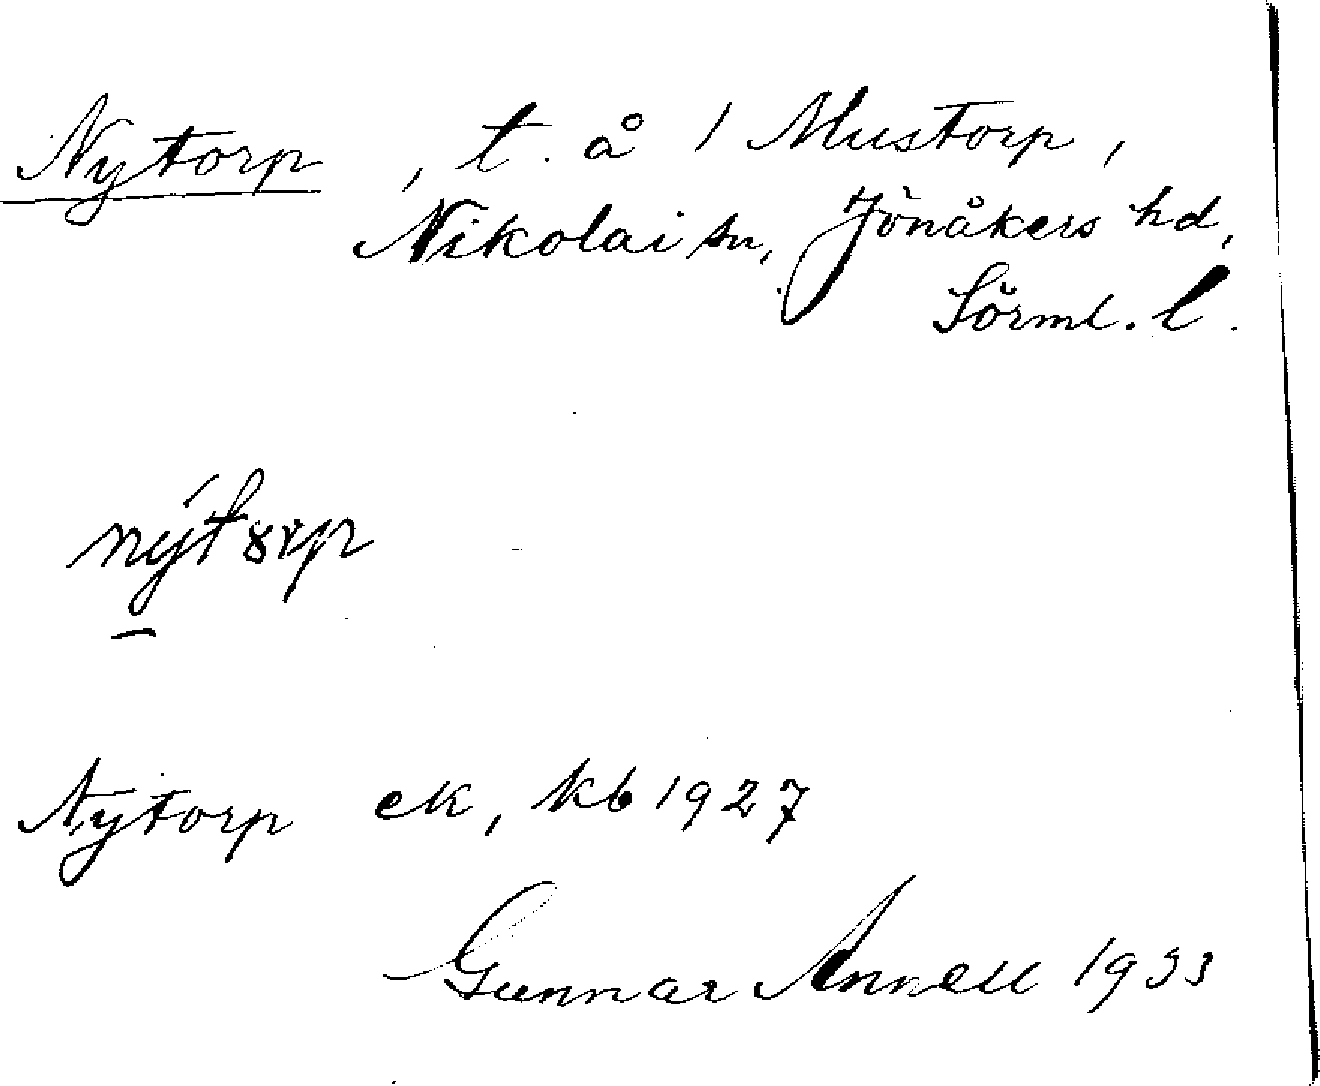 Nytorp, t. å 1 Mustorp,
Nikolai sn, Jönåkers hd,
Sörml. l.
nýtorp
Nytorp ek, kb 1927
Gunnar Annell 1933